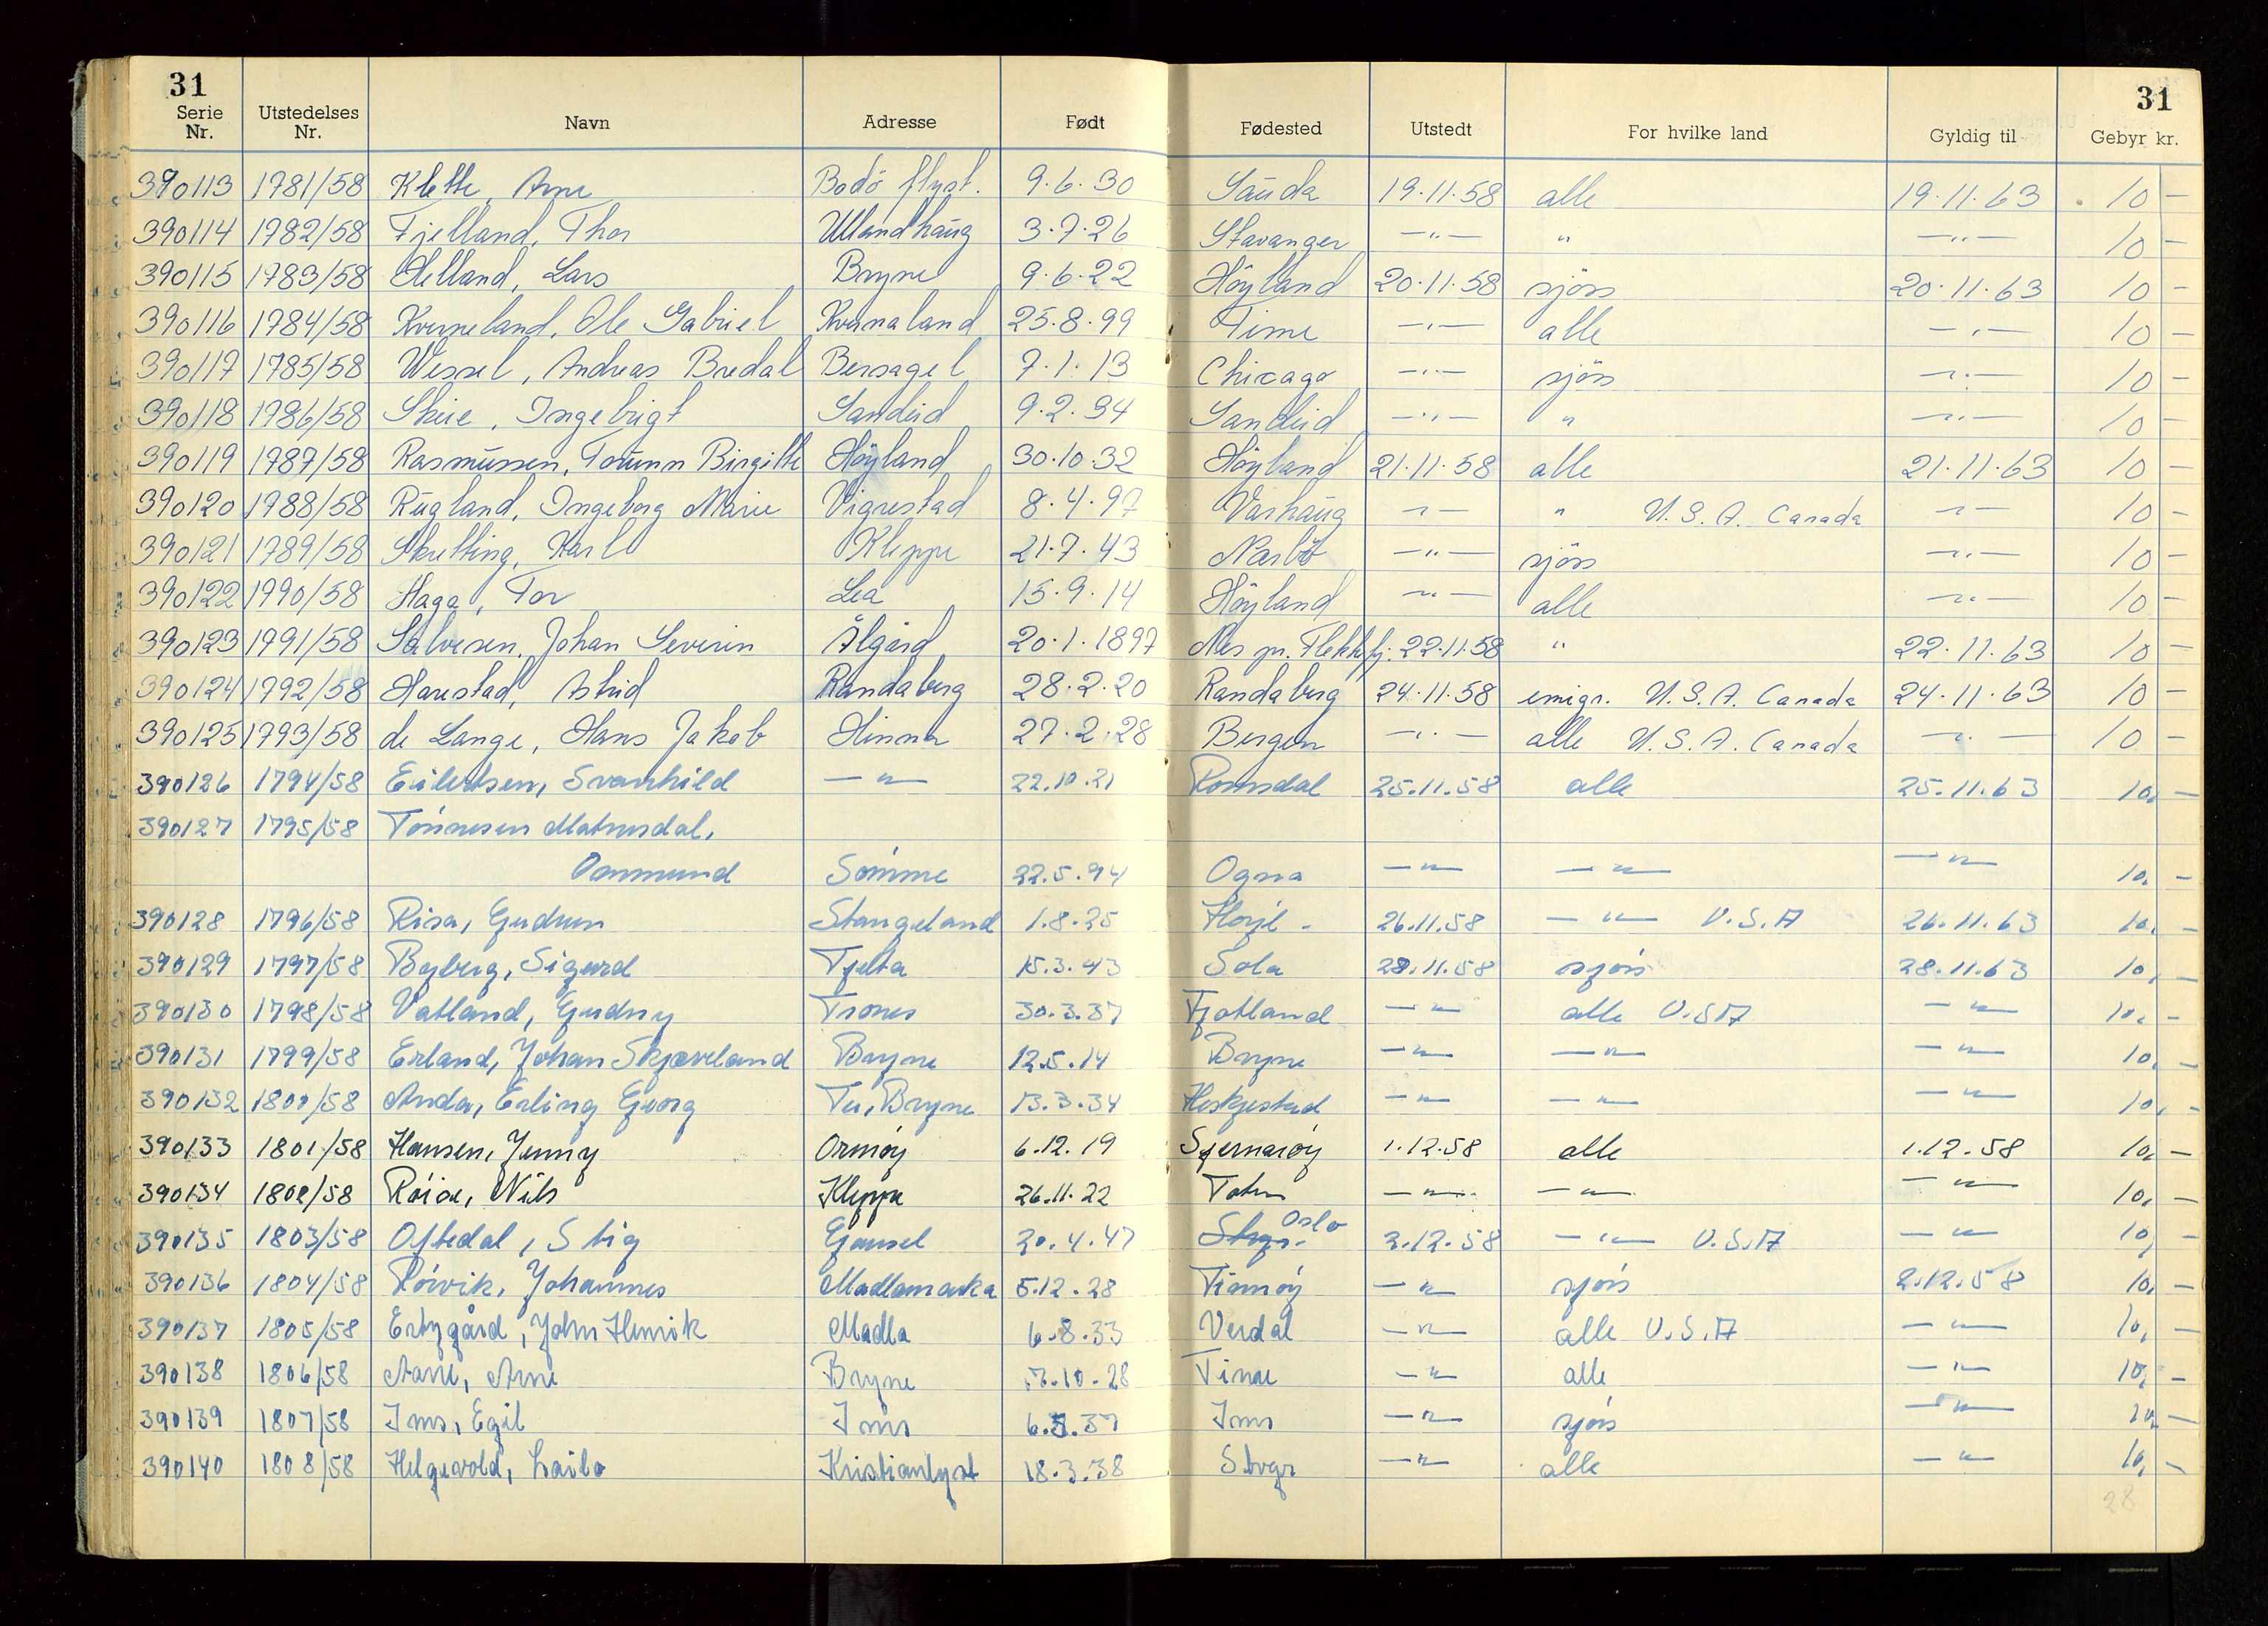 31 31
Serie Nr. Utstedelses Nr. Navn Adresse Født Fødested Utstedt For hvilke land Gyldig til Gebyr kr.
390113 1781/58 Klette, Arne Bodö flyst. 9.6.30 Sauda 19.11.58 alle 19.11.63 10 -
390114 1782/58 Fjelland, Thor Ullandhaug 3.7.26 Stavanger -"- " -"- 10 -
390115 1783/58 Helland, Lars Bryne 9.6.22 Höyland 20.11.58 sjöss 20.11.63 10 -
390116 1784/58 Kverneland, Ole Gabriel Kvernaland 25.8.99 Time -"- alle -"- 10 -
390117 1785/58 Wessel, Andreas Bredal Bersagel 7.1.13 Chicago -"- sjöss -"- 10 -
390118 1786/58 Skeie, Ingebrigt Sandeid 9.2.34 Sandeid -"- " -"- 10 -
390119 1787/58 Rasmussen, Torunn Birgitte Höyland 30.10.32 Höyland 21.11.58 alle 21.11.63 10 -
390120 1788/58 Rugland, Ingeborg Marie Vigrestad 8.4.97 Varhaug -"- " U.S.A. Canada -"- 10 -
390121 1789/58 Skretting, Karl Kleppe 21.7.43 Nærbö -"- sjöss -"- 10 -
390122 1990/58 Haga, Tor Lea 15.9.14 Höyland -"- alle -"- 10 -
390123 1791/58 Salvesen, Johan Severin Ålgård 20.1.1897 Nes pr. Flekkefj. 22.11.58 " 22.11.63 10 -
390124 1792/58 Harestad, Astrid Randaberg 28.2.20 Randaberg 24.11.58 emigr. U.S.A. Canada 24.11.63 10 -
390125 1793/58 de Lange, Hans Jakob Hinna 27.2.28 Bergen -"- alle U.S.A. Canada -"- 10 -
390126 1794/58 Eilertsen, Svanhild -"- 22.10.21 Romsdal 25.11.58 alle 25.11.63 10, -
390127 1795/58 Tönnesen Matnisdal,
Osmund Sömme 22.5.94 Ogna -"- -"- -"- 10, -
390128 1796/58 Risa, Gudrun Stangeland 1.8.25 Höyl. 26.11.58 -"- U.S.A 26.11.63 10, -
390129 1797/58 Byberg, Sigurd Tjelta 15.3.43 Sola 28.11.58 sjöss 28.11.63 10, -
390130 1798/58 Vatland, Gudny Trones 30.3.37 Fjotland -"- alle U.S.A -"- 10, -
390131 1799/58 Erland, Johan Skjæveland Bryne 12.5.14 Bryne -"- -"- -"- 10, -
390132 1800/58 Anda, Erling Georg Tu, Bryne 13.3.34 Heskjestad -"- -"- -"- 10, -
390133 1801/58 Hansen, Jenny Ormöy 6.12.19 Sjernaröy 1.12.58 alle 1.12.58 10, -
390134 1802/58 Nils Kleppe 26.11.22 -"- -"- -"- 10, -
390135 1803/58 Oftedal, Stig Gausel 20.4.47 Stvgr. Oslo 2.12.58 -"- U.S.A -"- 10, -
390136 1804/58 Röivik, Johannes Madlamarka 5.12.28 -"- sjöss 2.12.58 10, -
390137 1805/58 John Henrik Madla 6.8.33 Verdal -"- alle U.S.A -"- 10, -
390138 1806/58 Arne Bryne 10.28 Time -"- alle -"- 10, -
390139 1807/58 Ims, Egil Ims 6.5.37 Ims -"- sjöss -"- 10, -
390140 1808/58 Helgevold, Laila Kristianlyst 18.3.38 Stvgr -"- alle -"- 10, -
28